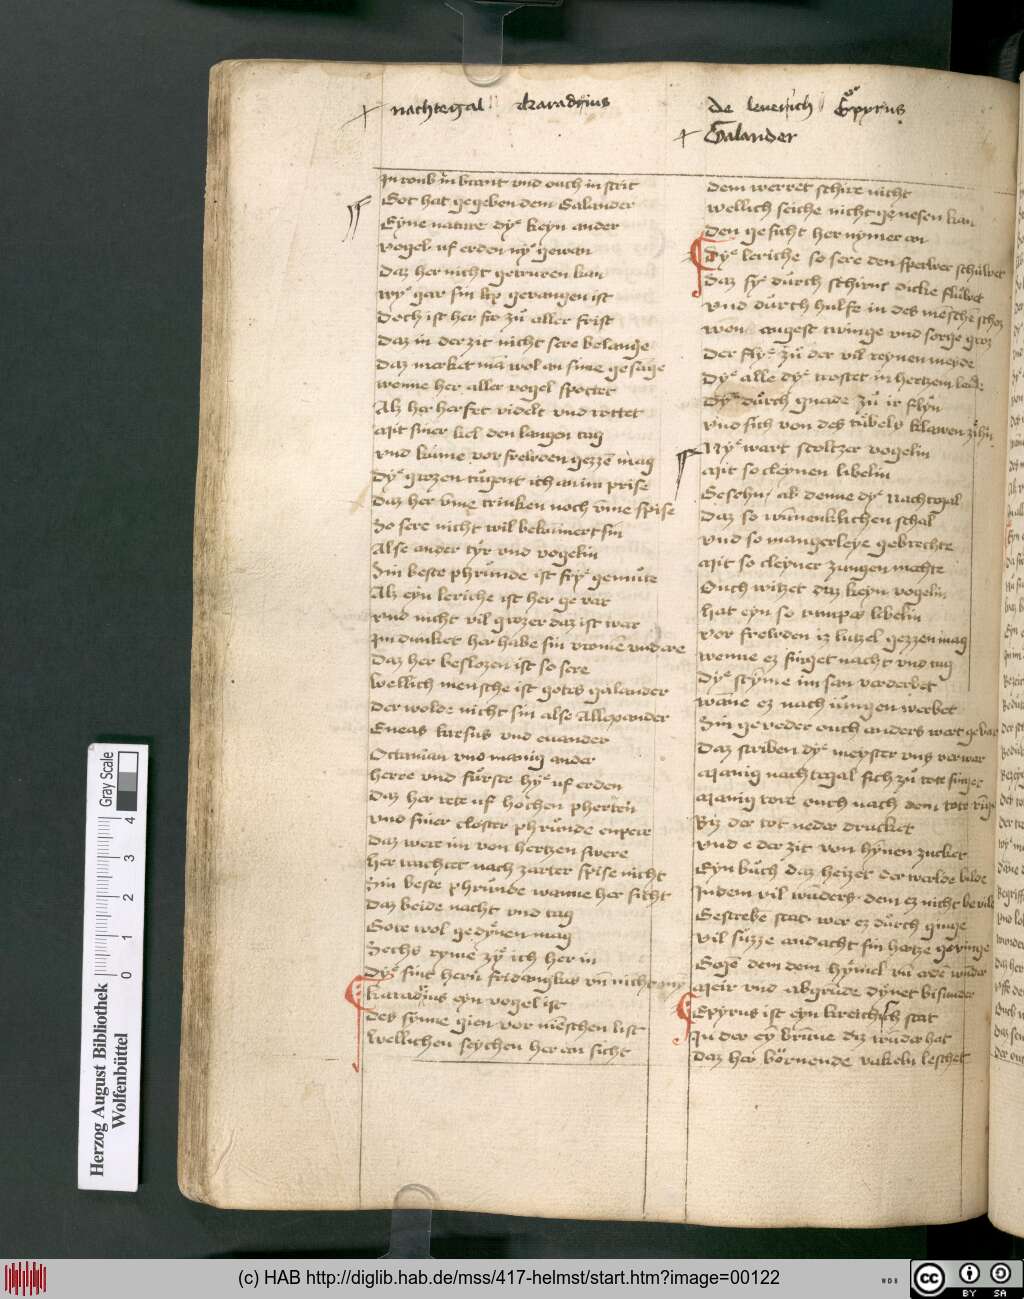 nachtegal karadrius
de leuerich Epyrus
Galander
In roub in brant vnd ouch in strit
Got hat gegeben dem Galander
Eyne nature dye keyn ander
vogel uf erden nye gewan
Daz her nicht getruren kan
wye gar sin lip gevangen ist
Doch ist her fro zu aller frist
Daz in der zit nicht sere belange
Daz merket man wol an sime gesange
wenne her aller vogel spottet
Alz her herfet videlt vnd rottet
Mit siner kel den langen tag
vnd kume vor frewden gezzen mag
Dye grozen tugent ich an im prise
Daz her vme trinken noch vme spise
So sere nicht wil bekummert sin
Alse ander tyr vnd vogelin
Sin beste phrunde ist frye gemute
Alz eyn leriche ist her gevar
vnd nicht vil grozer daz ist war
Im dunket her habe sin vromen vnd ere
Daz her beslozen ist so sere
wellich mensche ist gotes galander
Der wolde nicht sin alse Allexander
Eneas kresus vnd euander
Octauian vnd manig ander
herre vnd furste hye uf erden
Daz her rete uf hochen pherten
vnd siner closter phrunde enpere
Daz were im von hertzen swere
Her trachtet nach zarter spise nicht
Sin beste phrunde wanne her sicht
Daz beide nacht vnd tag
Gote wol gedynen mag
Sechs ryme zye ich her in
Dye sint hern fridankus vn nicht myn
Karadrius eyn vogel ist
Des synne gien vor menschen list
Wellichen seychen her an sicht
dem werret schire nicht
wellich seiche nicht genesen kan
den gesicht her nymer an
Dye leriche so sere den sperwer schuwet
Daz sye durch schirm dicke fluwet
vnd durch hulfe in des menschen schoz
wen angest twinge vnd sorge groz
Der flye zu der vil reynen meyde
Dye alle dye trostet in hertzem leide
Dye durch gnade zu ir flyn
vnd sich von des tubels klawen zihn
Nye wart stoltzer vogelin
Mit so cleynen libelin
Gesehn, ab denne dye nachtegal
Daz so wunenklichen schal
vnd so mangerleye gebrechte
Mit so cleyner zungen mechte
Ouch witzet daz keyn vogelin
hat eyn so timper libelin
vor frewden iz lutzel gezzen mag
wenne ez singet nacht vnd tag
Dye styme im san verderbet
wane ez nach iungen werbet
Sin gevedere ouch anders wert gevar
Daz scriben dye meyster vns vor war
Manig nachtegal sich zu tote singet
Manig tore ouch nach dem tote ringet
Biz der tot neder drucket
vnd e der zit von hynen zucket
Eyn buch daz heizet der werlde bilde
In dem vil wunders dem ez nicht bevilde
Gescrebe stat wer ez durch ginge
vil suzze andacht sin hertze gevinge
Gegen dem dem hymel vn erden wunder
Meir vnd abgrunde dynet bisunder
Epyrus ist eyn kreichisch stat
In der eyn brunne diz wunder hat
Daz her bornende vakeln leschet
Herzog August Bibliothek
Wolfenbüttel
Gray Scale
0 1 2 3 4
(c) HAB http://diglib.hab.de/mss/417-helmst/start.htm?image=00122
WDB
cc BY SA